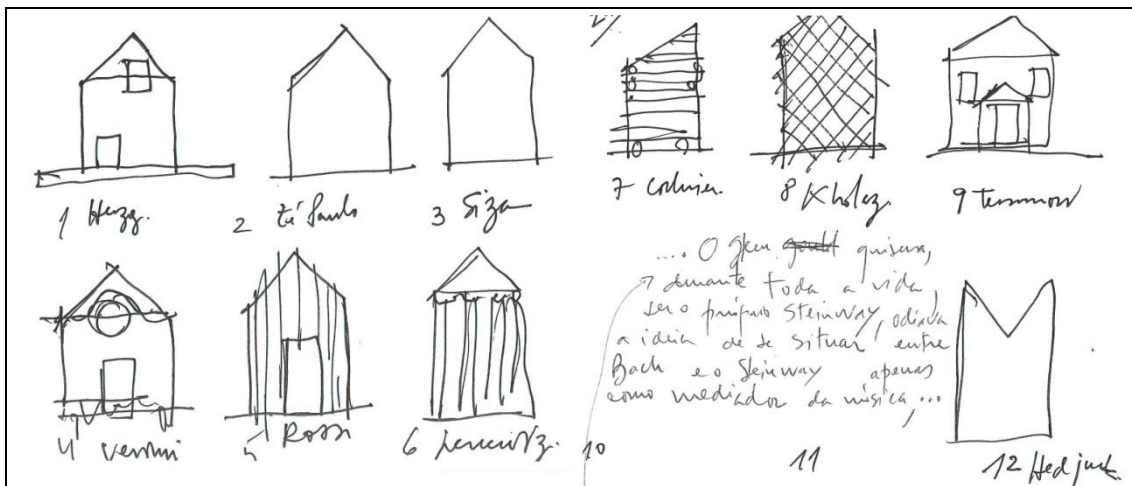 1 Herzg.
2 Zé Paulo
3 Siza
7
8
9 Tessenow
4 Venturi
5 Rossi
6
.... O Glen quisera,
durante toda a vida,
ser o próprio Steinway, odiava
a ideia de se situar entre
Bach e o Steinway apenas
como mediador da música...
10
11
12 Hedjuk.